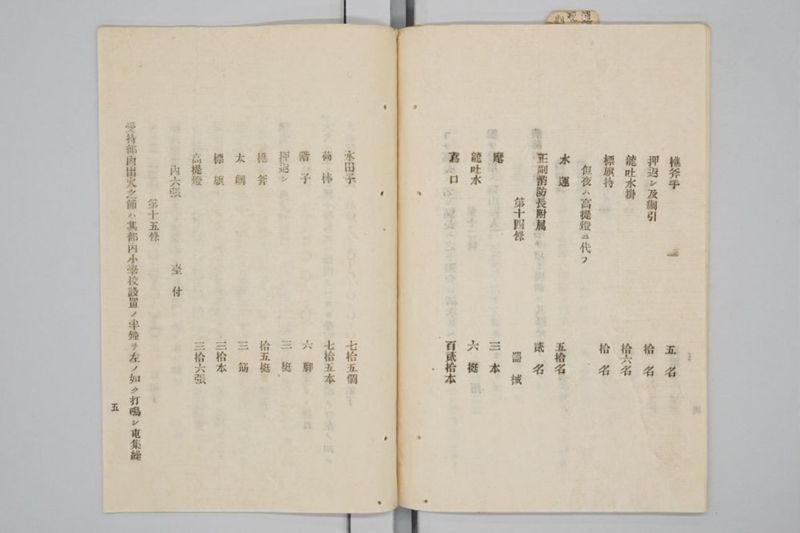 樵斧手 五名
押返シ及綱引 拾名
龍吐水掛 拾六名
標旗持 拾名
但夜ハ高提燈ニ代フ
水運 五拾名
正副消防長附属 貳名
第十四條 器械
纏 三本
龍吐水 六挺
鳶口 百貳拾本
水田子 七拾五個
荷棒 七拾五本
階子 六脚
押返シ 三挺
樵斧 拾五挺
太綱 三筋
標旗 三拾本
高提燈 三拾六張
內六張 臺付
第十五條
受持部內出火之節ハ其部內小學校設置ノ半鐘ヲ左ノ如ク打鳴シ屯集繰
五